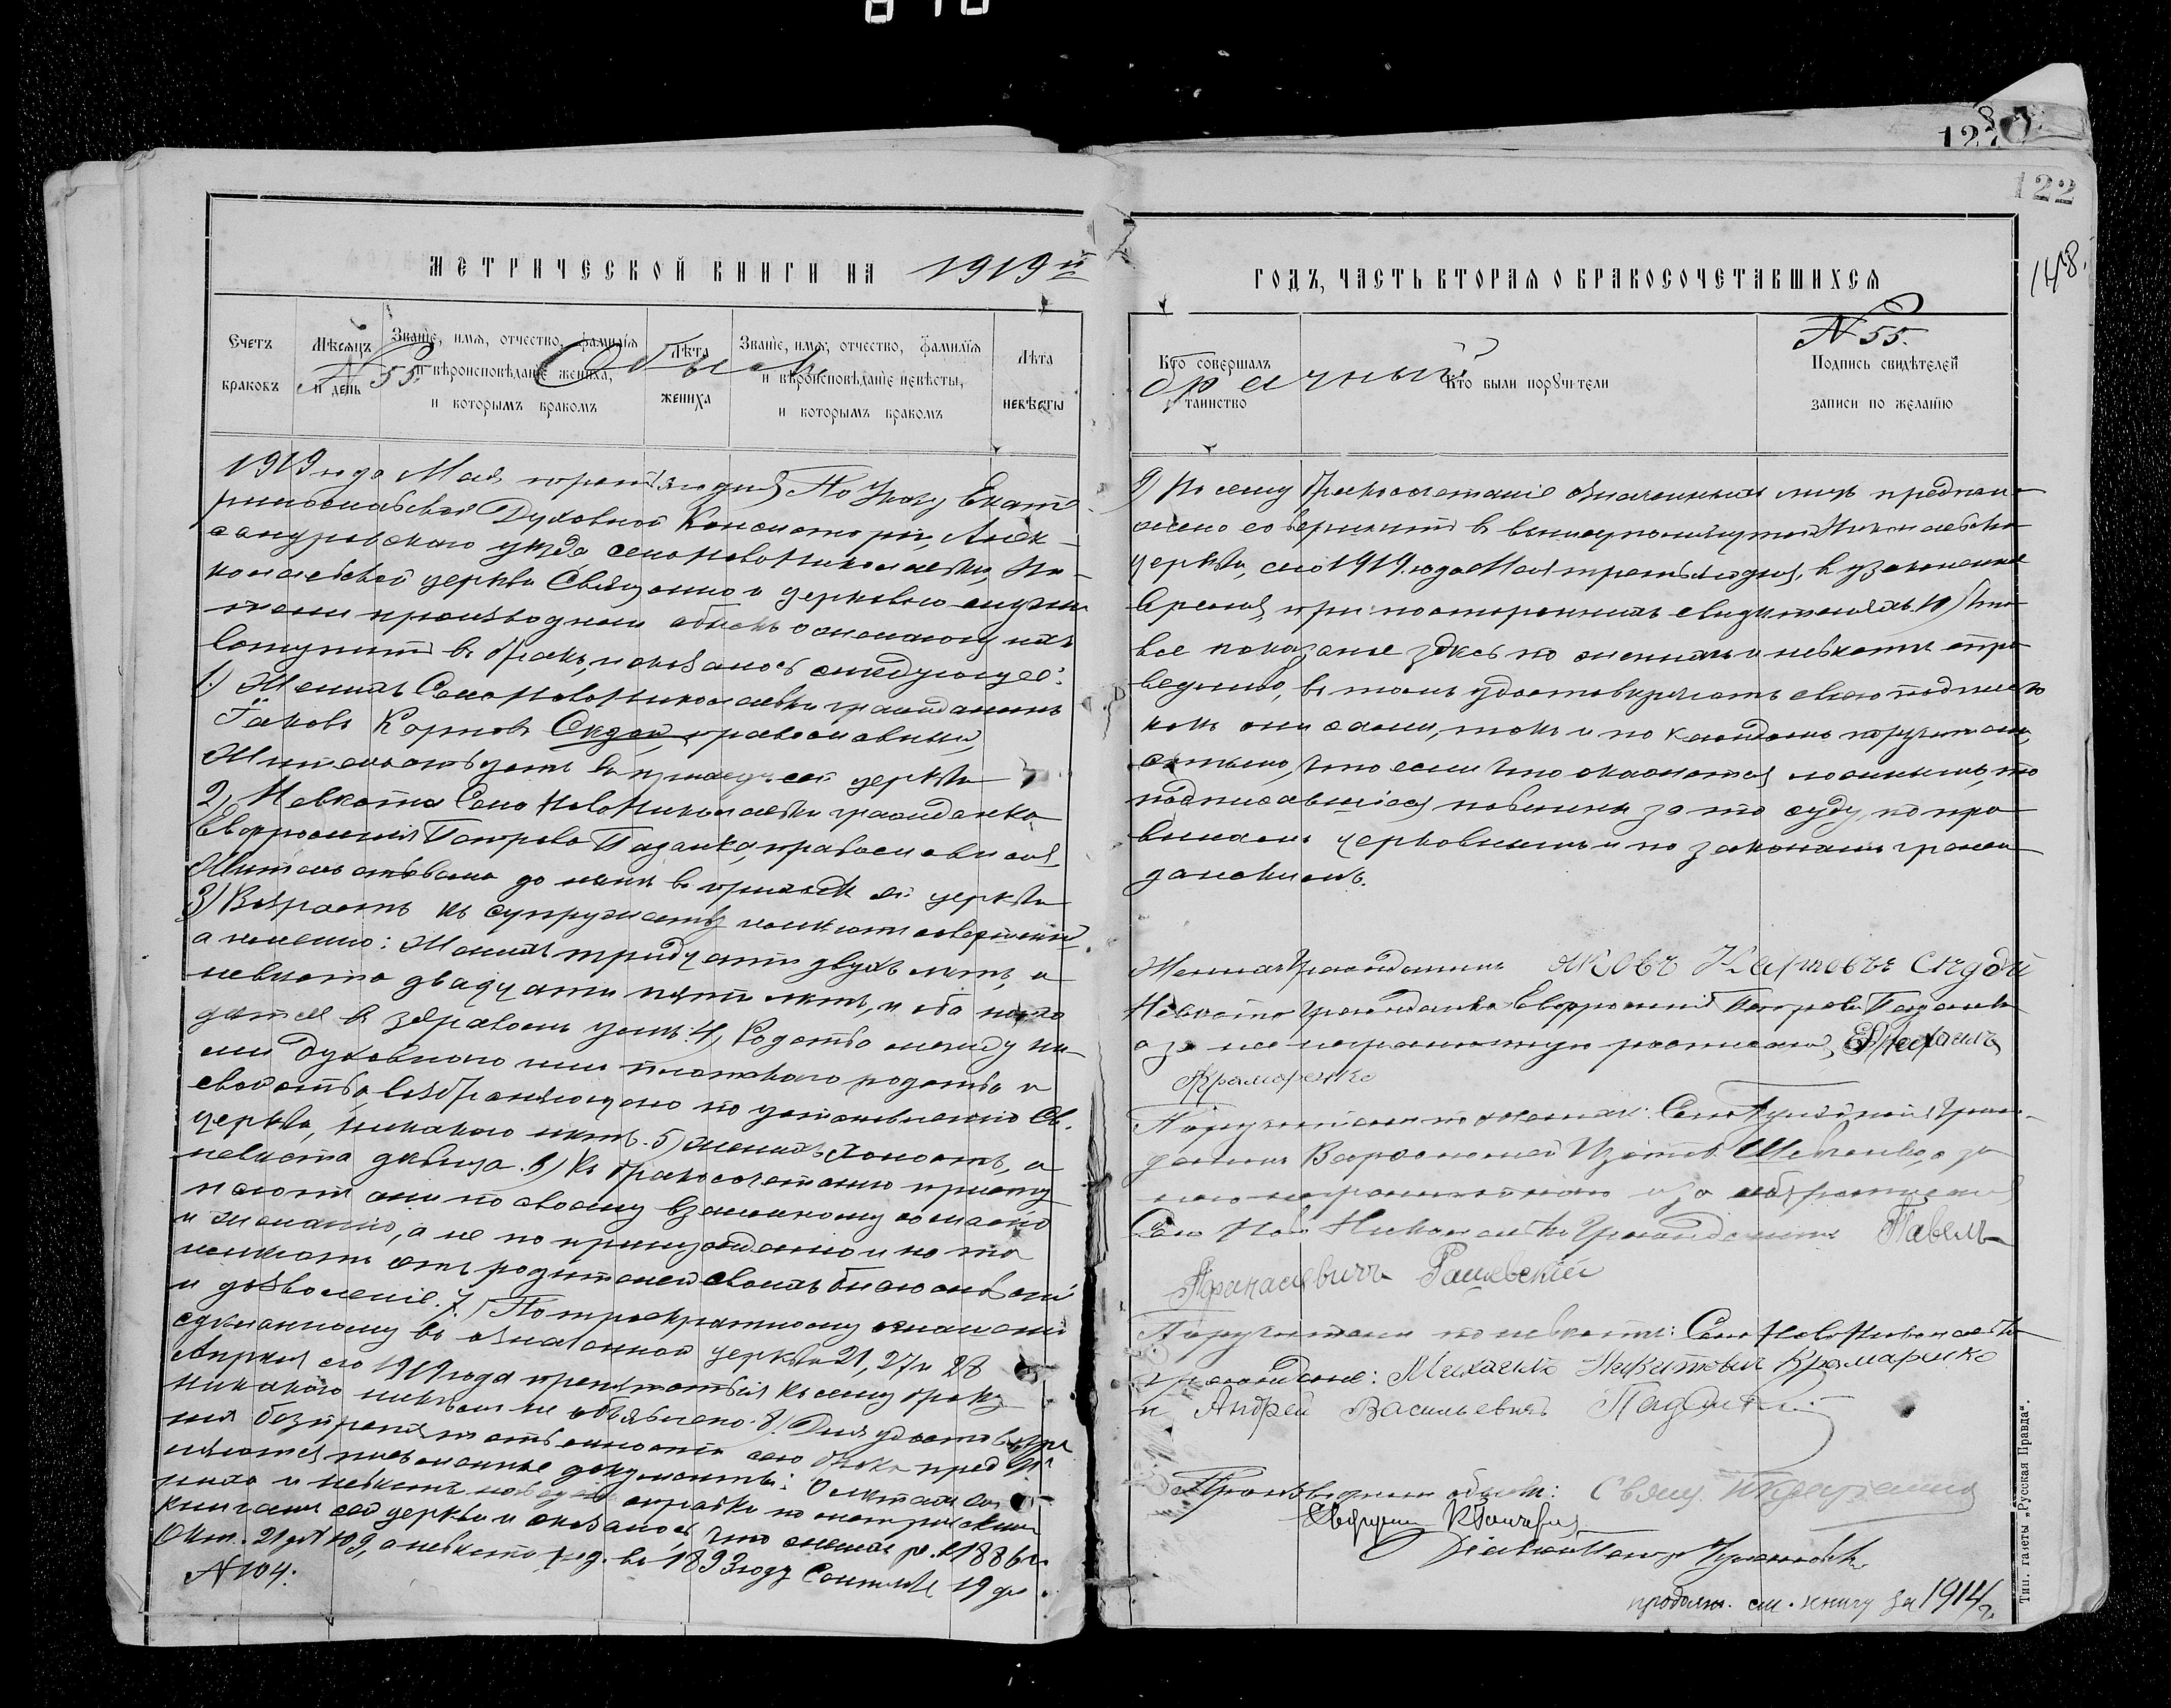 122
148.
МЕТРИЧЕСКОЙ КНИГИ НА 1919й
Счетъ браковъ
Мѣсяцъ и день
Званіе, имя, отчество, фамилія и вѣроисповѣданіе жениха, и которымъ бракомъ
Лѣта жениха
Званіе, имя, отчество, фамилія и вѣроисповѣданіе невѣсты, и которымъ бракомъ
Лѣта невѣсты
N 55. Обыскъ
1919 года Мая третьяго дня По Указу Екате-
ринославской Духовной Консисторіи, Алек-
сандровскаго уѣзда села НовоНиколаевки, Ни-
колаевской церкви Священно и церковно служи-
тели производили обыскъ о желающихъ
вступить въ бракъ, и оказалось слѣдующее:
1.) Женихъ Села НовоНиколаевки гражданинъ
Іаковъ Карповъ Сѣдой, православный,
Жительствуетъ въ приходѣ сей церкви
2) Невѣста Села НовоНиколаевки гражданка
Евфросинія Петрова Падалка, православная,
Жительствовала до нынѣ въ приходѣ сей церкви
3) Возрастъ къ супружеству имѣютъ совершенный
а именно: Женихъ тридцати двухъ лѣтъ, а
невѣста двадцати пяти лѣтъ, и оба нахо
дятся въ здравомъ умѣ. 4) Родство между ни-
ми духовнаго или плотскаго родства и
свойства, возбраняющаго по установленію Св.
церкви, никакого нѣтъ. 5) женихъ холостъ, а
невѣста дѣвица. 6) Къ бракосочетанію присту
паютъ они по своему взаимному согласію
и желанію, а не по принужденію и на то
имѣютъ отъ родителей своихъ благословеніе
и дозволеніе. 7.) По троекратному оглашенію
сдѣланному въ означенной церкви 21, 27 и 28
Апрѣля сего 1919 года препятствія къ сему браку
никакого никѣмъ не объявлено. 8.) Для удостовѣре
нія безпрепятственности сего брака пред
ляются письменные документы: О лѣтахъ же
ниха и невѣсты справки по метрическимъ
книгамъ сей церкви и оказалось, что женихъ р. въ 1886 г.
Окт. 21 д. N 109, а невѣста род. въ 1893 году Сентября 19 дня
N 104.
ГОДЪ, ЧАСТЬ ВТОРАЯ О БРАКОСОЧЕТАВШИХСЯ
Кто совершалъ таинство
Кто были поручители
Подпись свидѣтелей записи по желанію
брачный N 55.
9) По сему бракосочетаніе означенныхъ лицъ предполо-
жено совершить въ вышеупомянутой Николаевской
церкви, сего 1919 года Мая третьяго дня, въ узаконенное
время, при постороннихъ свидѣтеляхъ. 10) Что
все показанное здѣсь по женихѣ и невѣстѣ спра
ведливо, въ томъ удостовѣряютъ своею подписью
какъ они сами, такъ и по каждомъ поручители,
съ тѣмъ, что если что окажется ложнымъ, то
подписавшіеся повинны за то суду по пра
виламъ церковнымъ и по законамъ граж
данскимъ.
Женихъ Гражданинъ Яковъ Карповъ Сѣдой
Невѣста Гражданка Евфросинія Петрова Падалка
а за нее неграмотную росписался Михаилъ
Крамаренко
Поручители по женихѣ: Села Граж-
данинъ Шевченко, а за
него неграмотнаго и за себя росписался
Села Ново Николаевки Гражданинъ Павелъ
Афанасіевичъ Рашевскій
Поручители по невѣстѣ: Села НовоНиколаевки
граждане: Михаилъ Никитовичъ Крамаренко
и Андрей Васильевичъ Падалка
Производили обыскъ: Свящ.
продолж. см. книгу за 1914 г.
Тип. газеты „Русская Правда“.